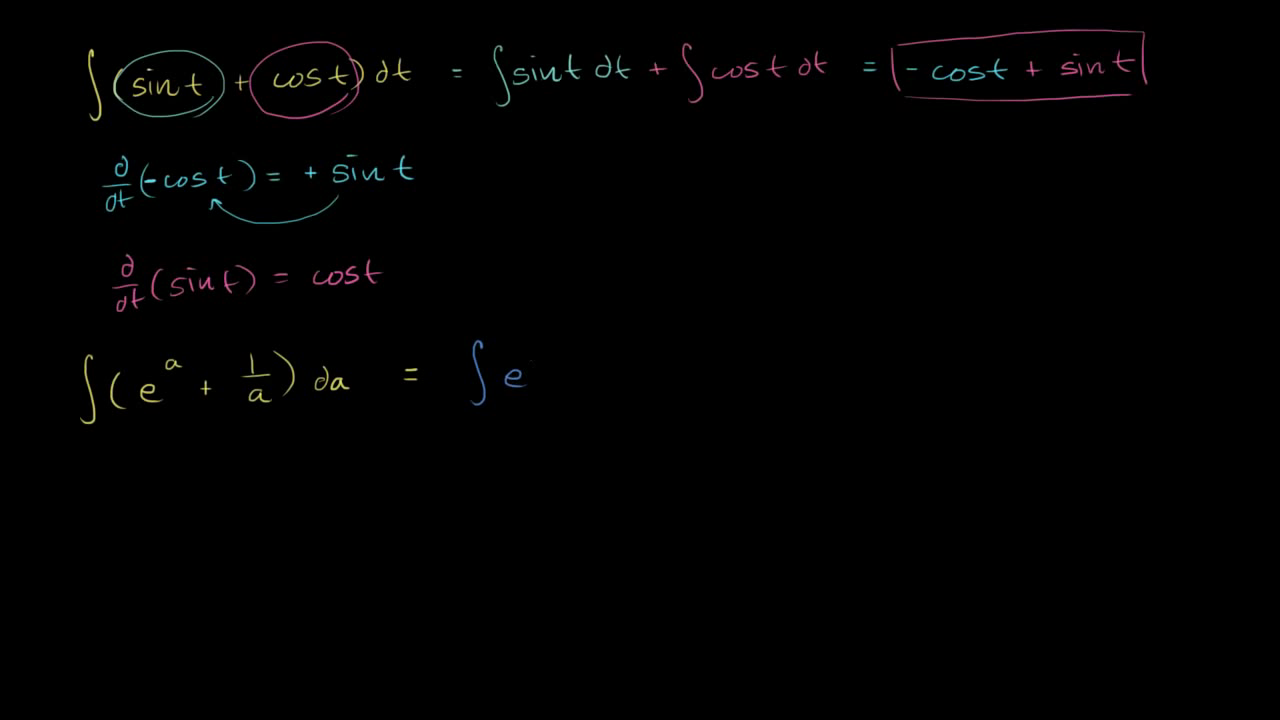 ∫(sin t + cos t) dt = ∫sin t dt + ∫cos t dt = - cos t + sin t
d/dt (-cos t) = + sin t
d/dt (sin t) = cos t
∫(e^a + 1/a) da = ∫ e